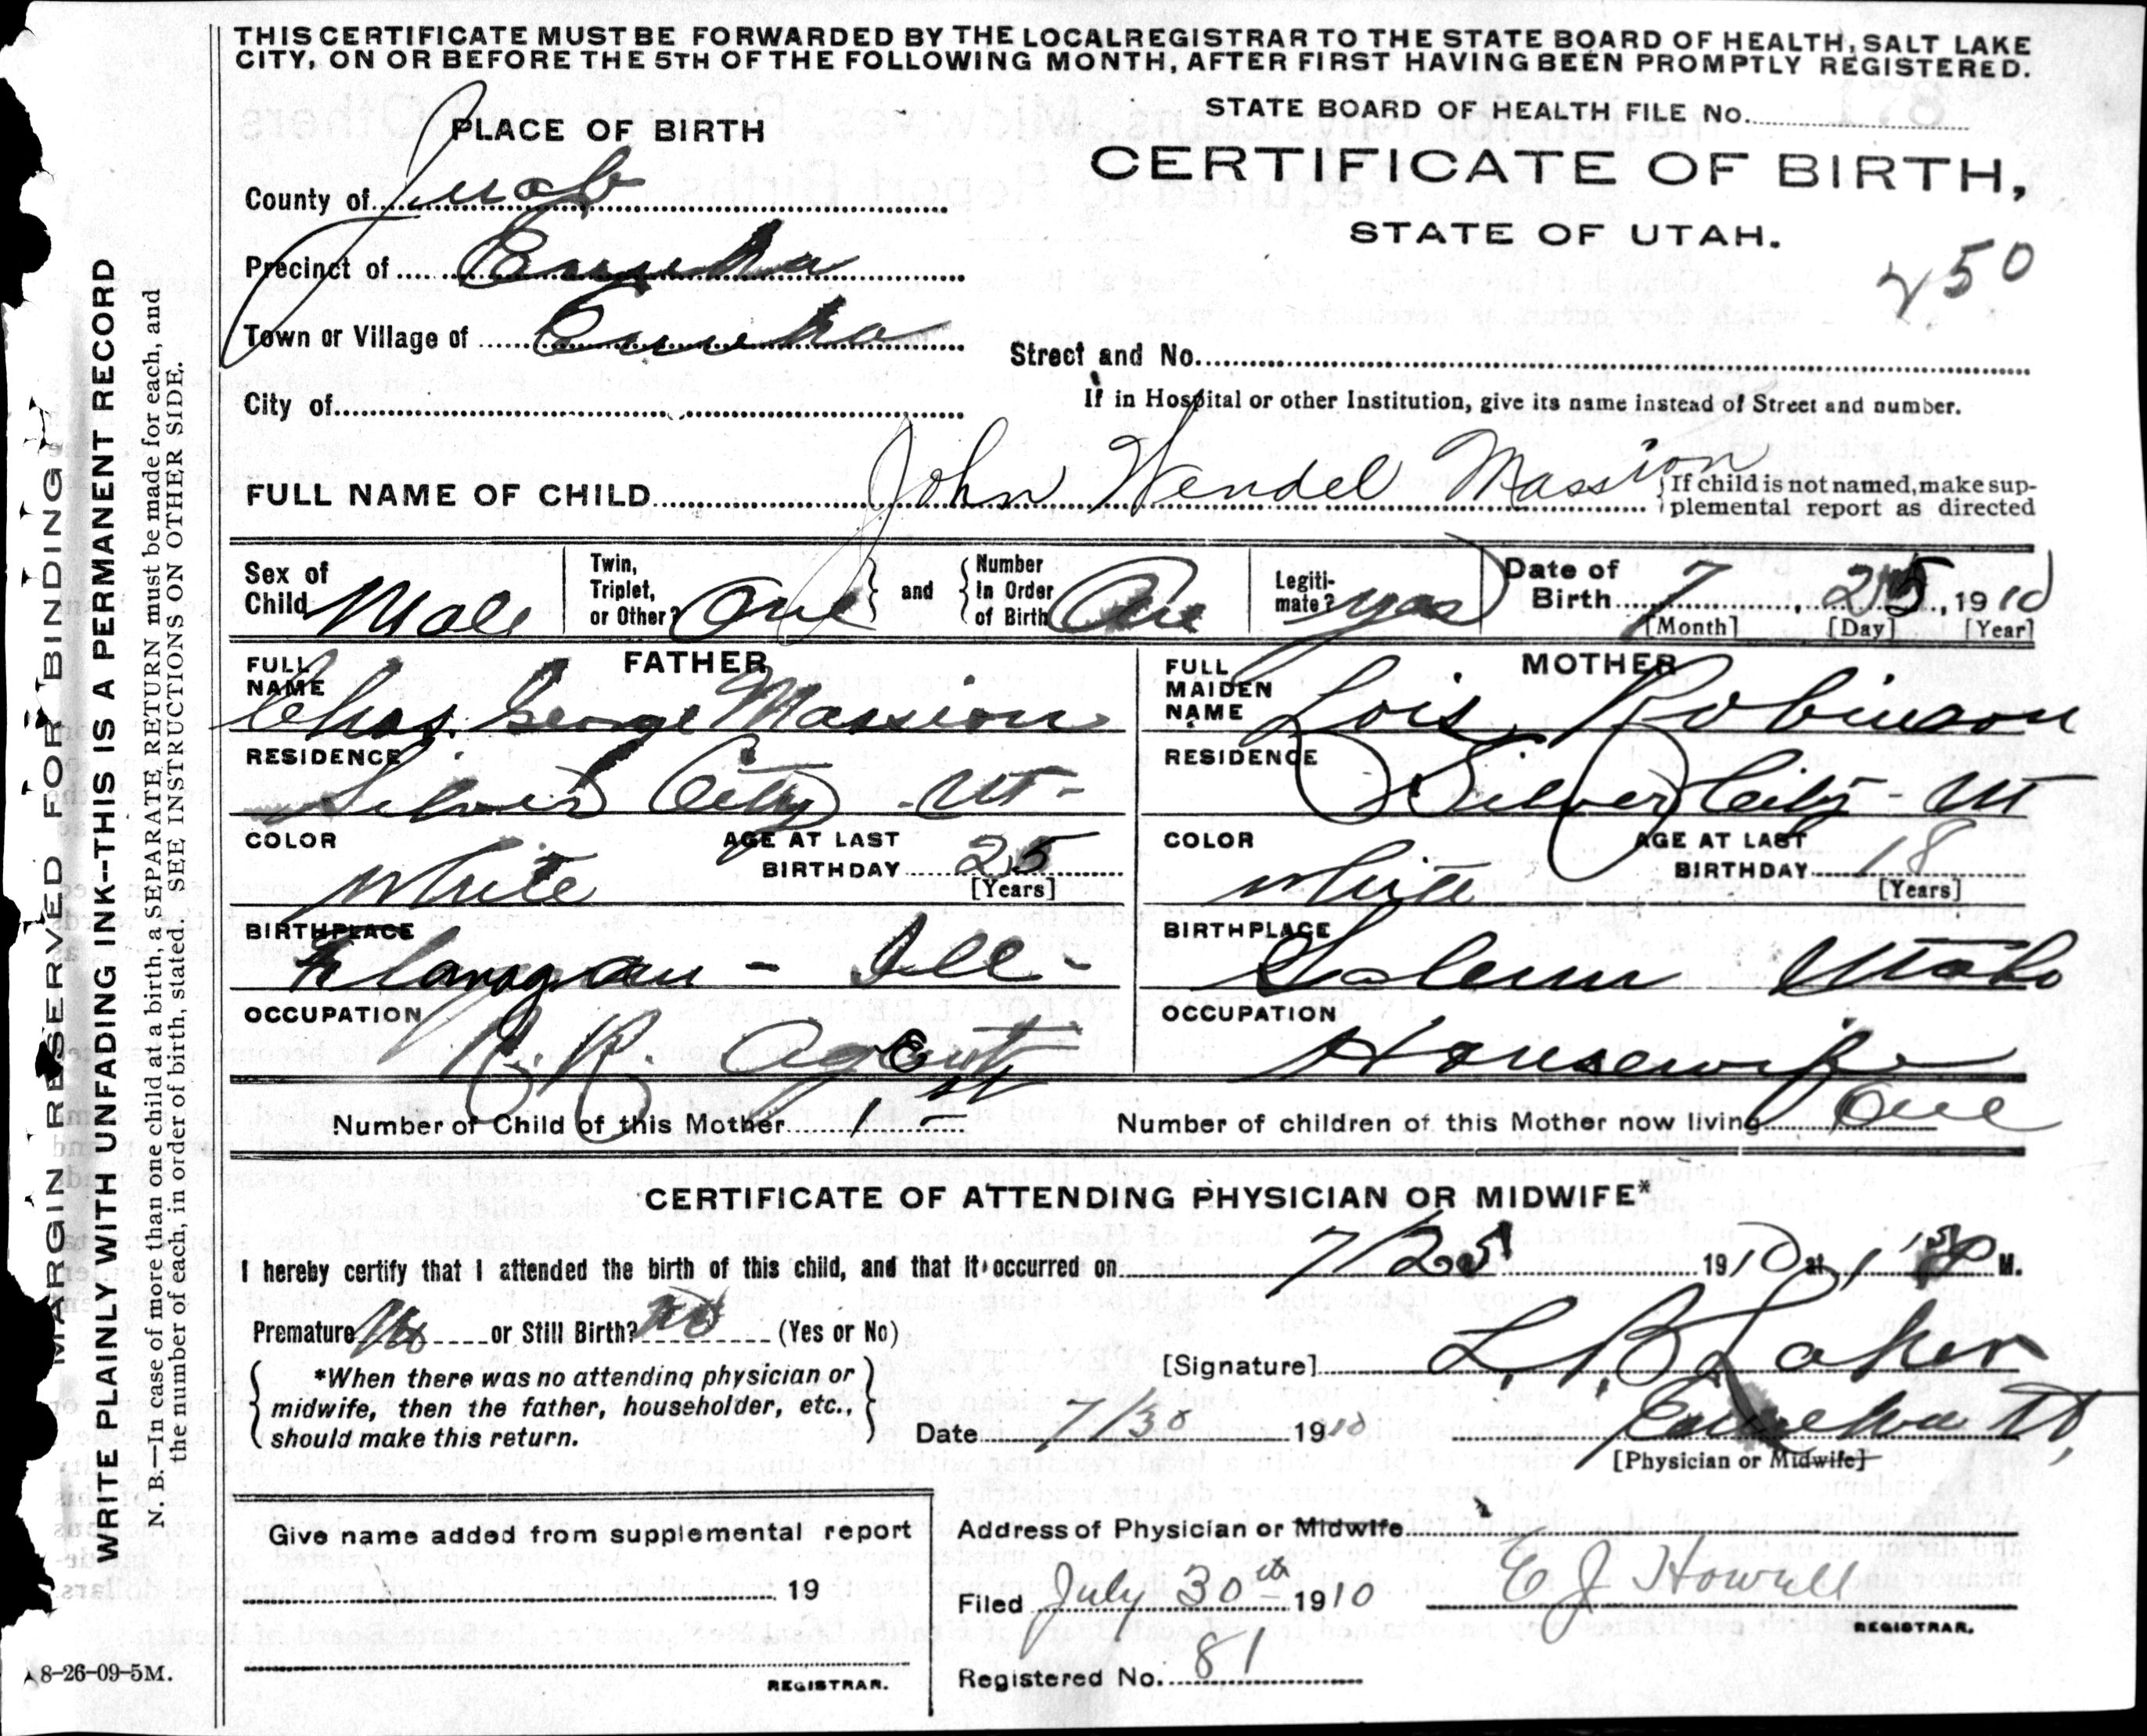 THIS CERTIFICATE MUST BE FORWARDED BY THE LOCAL REGISTRAR TO THE STATE BOARD OF HEALTH, SALT LAKE
CITY, ON OR BEFORE THE 5TH OF THE FOLLOWING MONTH, AFTER FIRST HAVING BEEN PROMPTLY REGISTERED.
STATE BOARD OF HEALTH FILE No.
PLACE OF BIRTH
CERTIFICATE OF BIRTH,
STATE OF UTAH.
250
County of Juab
Precinct of Eureka
Town or Village of Eureka
Street and No.
City of
If in Hospital or other Institution, give its name instead of Street and number.
FULL NAME OF CHILD John Wendel Massion
{If child is not named, make sup-
plemental report as directed
Sex of Child Male
Twin, Triplet, or Other? One } and { Number In Order of Birth One
Legiti-mate? yes
Date of Birth 7, 25, 1910
[Month] [Day] [Year]
FATHER
FULL NAME Chas. George Massion
RESIDENCE Silver City - Ut -
COLOR White
AGE AT LAST BIRTHDAY 25 [Years]
BIRTHPLACE Flanagan - Ill -
OCCUPATION R. R. Agent
MOTHER
FULL MAIDEN NAME Lois Robinson
RESIDENCE Silver City - Ut
COLOR White
AGE AT LAST BIRTHDAY 18 [Years]
BIRTHPLACE Salem Utah
OCCUPATION Housewife
Number of Child of this Mother 1st
Number of children of this Mother now living One
CERTIFICATE OF ATTENDING PHYSICIAN OR MIDWIFE*
I hereby certify that I attended the birth of this child, and that it occurred on 7/25 1910 at 1 M.
Premature No or Still Birth? No (Yes or No)
{ *When there was no attending physician or
midwife, then the father, householder, etc.,
should make this return. }
[Signature] L. B. Laker
Date 7/30 1910
Eureka Ut,
[Physician or Midwife]
Give name added from supplemental report
19
REGISTRAR.
Address of Physician or Midwife
Filed July 30th 1910
E J Howell
REGISTRAR.
Registered No. 81
MARGIN RESERVED FOR BINDING
WRITE PLAINLY WITH UNFADING INK--THIS IS A PERMANENT RECORD
N. B.—In case of more than one child at a birth, a SEPARATE RETURN must be made for each, and
the number of each, in order of birth, stated. SEE INSTRUCTIONS ON OTHER SIDE.
8-26-09-5M.